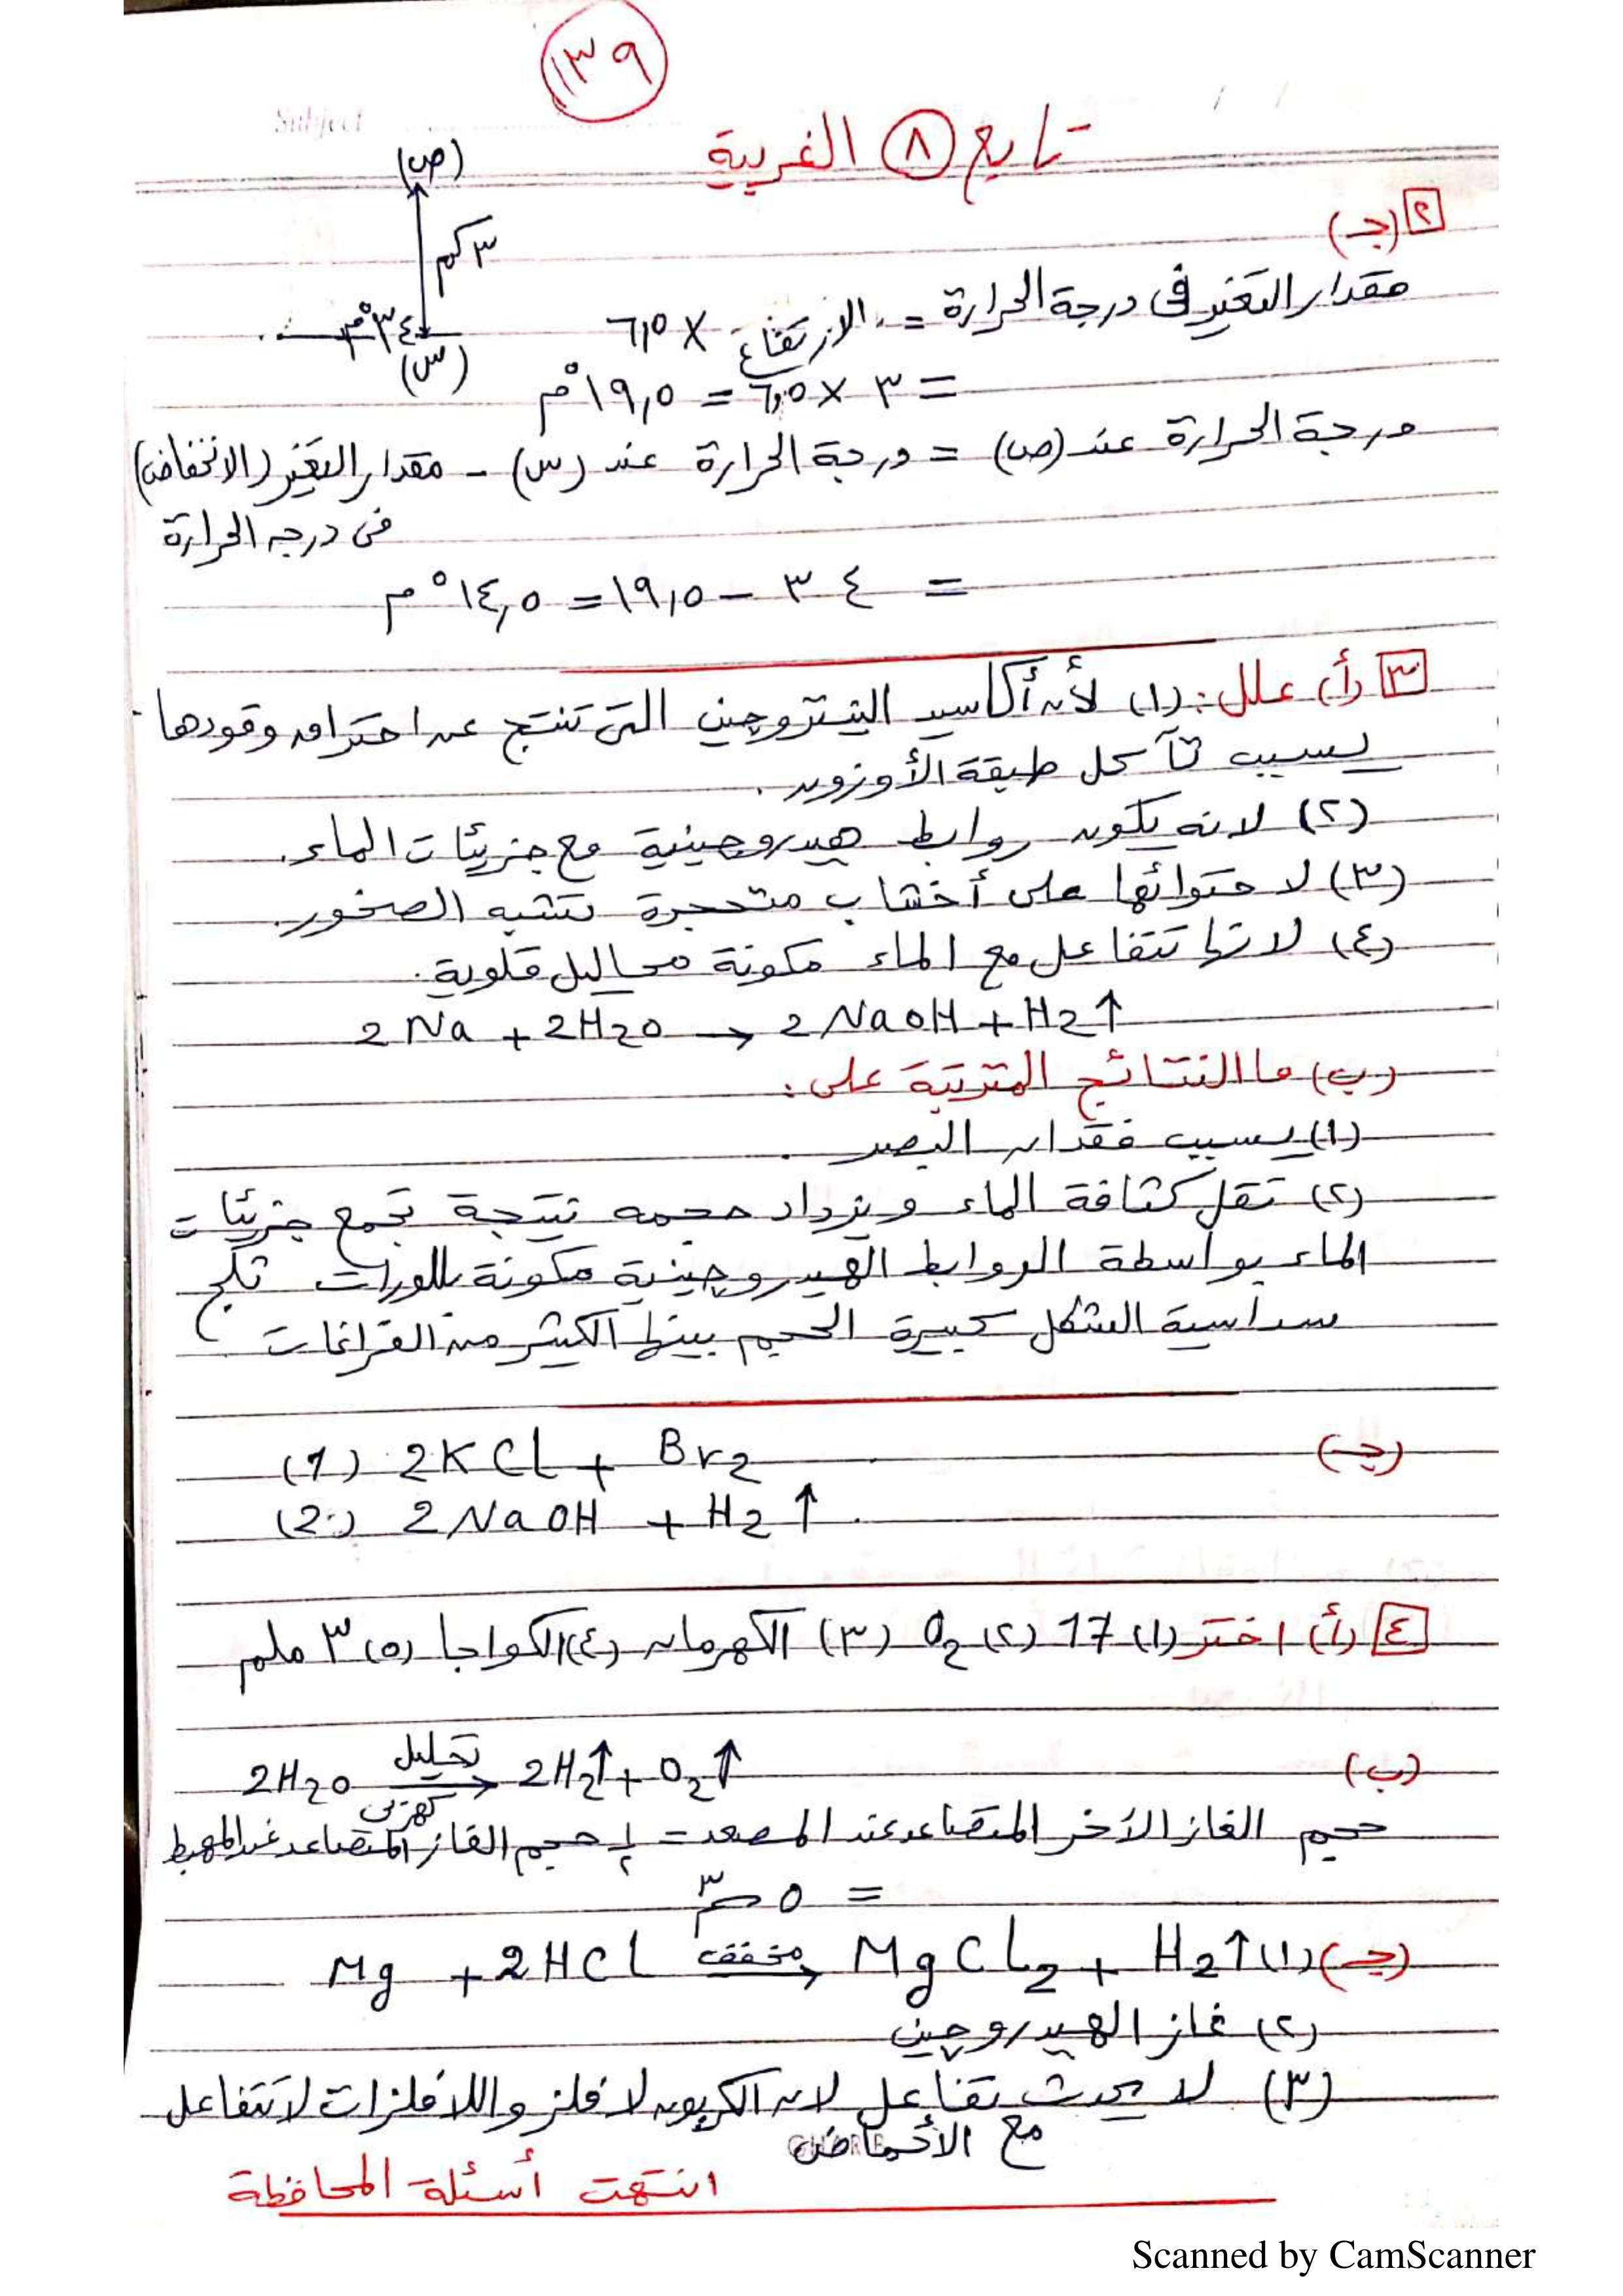 ١٣٩
Subject
تابع ٨ الغربية
٢ (جـ)
(ص)
٣ كم
٣٤°م
(س)
مقدار التغير في درجة الحرارة = الارتفاع × ٦,٥
= ٣ × ٦,٥ = ١٩,٥°م
درجة الحرارة عند (ص) = درجة الحرارة عند (س) - مقدار التغير (الانخفاض)
في درجة الحرارة
= ٣٤ - ١٩,٥ = ١٤,٥°م
٣ (أ) علل: (١) لأن أكاسيد النيتروجين التي تنتج عن احتراق وقودها
يسبب تآكل طبقة الأوزون.
(٢) لانه يكون روابط هيدروجينية مع جزيئات الماء.
(٣) لاحتوائها على أخشاب متحجرة تشبه الصخور.
(٤) لانها تتفاعل مع الماء مكونة محاليل قلوية.
2Na + 2H2O → 2NaOH + H2↑
(ب) ما النتائج المترتبة على:
(١) يسبب فقدان البصر.
(٢) تقل كثافة الماء ويزداد حجمه نتيجة تجمع جزيئات
الماء بواسطة الروابط الهيدروجينية مكونة بللورات ثلج
سداسية الشكل كبيرة الحجم بينها الكثير من الفراغات
(جـ)
(1) 2KCl + Br2
(2) 2NaOH + H2↑
٤ (أ) اختر (١) 17 (٢) O2 (٣) الكهرمان (٤) الكواجا (٥) ٣ ملم
(ب) 2H2O تحليل كهربي → 2H2↑ + O2↑
حجم الغاز الآخر المتصاعد عند المصعد = ١/٢ حجم الغاز المتصاعد عند المهبط
= ٥ سم٣
(جـ) (١) Mg + 2HCl مخفف → MgCl2 + H2↑
(٢) غاز الهيدروجين
(٣) لا يحدث تفاعل لان الكربون لافلز واللافلزات لا تتفاعل
مع الأحماض
انتهت أسئلة المحافظة
Scanned by CamScanner